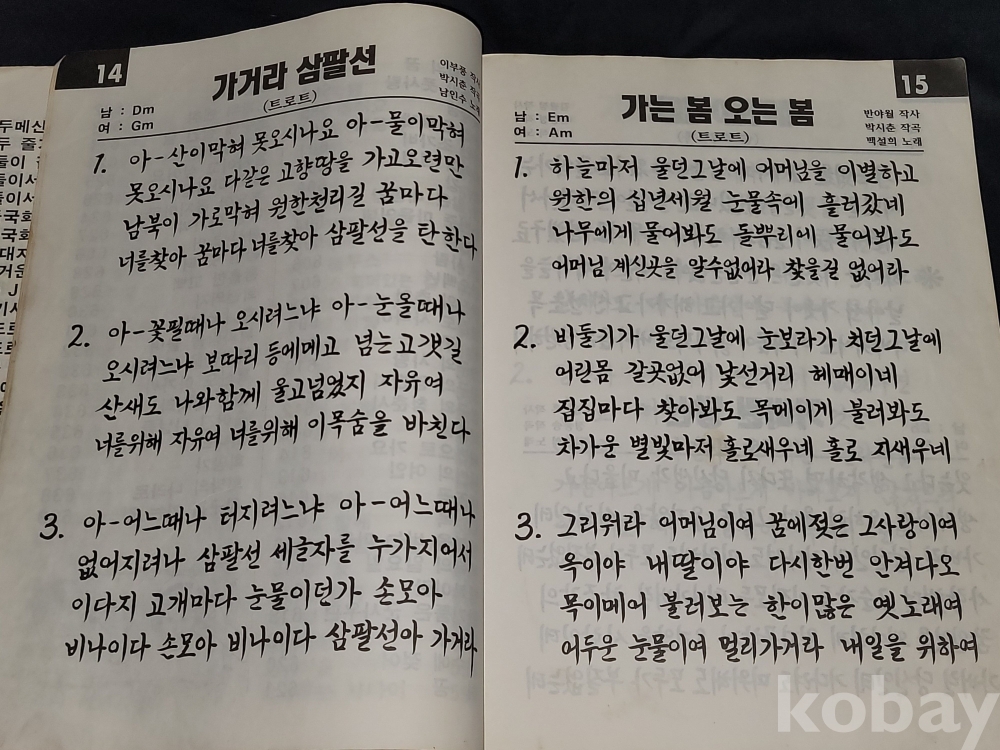 14
가거라 삼팔선
(트로트)
이부풍 작사
박시춘 작곡
남인수 노래
남 : Dm
여 : Gm
1. 아-산이막혀 못오시나요 아-물이막혀
못오시나요 다같은 고향땅을 가고오련만
남북이 가로막혀 원한천리길 꿈마다
너를찾아 꿈마다 너를찾아 삼팔선을 탄한다
2. 아-꽃필때나 오시려느냐 아-눈올때나
오시려느냐 보따리 등에메고 넘는고갯길
산새도 나와함께 울고넘었지 자유여
너를위해 자유여 너를위해 이목숨을 바친다
3. 아-어느때나 터지려느냐 아-어느때나
없어지려나 삼팔선 세글자를 누가지어서
이다지 고개마다 눈물이던가 손모아
비나이다 손모아 비나이다 삼팔선아 가거라
15
가는 봄 오는 봄
(트로트)
반야월 작사
박시춘 작곡
백설희 노래
남 : Em
여 : Am
1. 하늘마저 울던그날에 어머님을 이별하고
원한의 십년세월 눈물속에 흘러갔네
나무에게 물어봐도 돌뿌리에 물어봐도
어머님 계신곳을 알수없어라 찾을길 없어라
2. 비둘기가 울던그날에 눈보라가 치던그날에
어린몸 갈곳없어 낯선거리 헤매이네
집집마다 찾아봐도 목메이게 불러봐도
차가운 별빛마저 홀로새우네 홀로 지새우네
3. 그리워라 어머님이여 꿈에젖은 그사랑이여
옥이야 내딸이야 다시한번 안겨다오
목이메어 불러보는 한이많은 옛노래여
어두운 눈물이여 멀리가거라 내일을 위하여
kobay